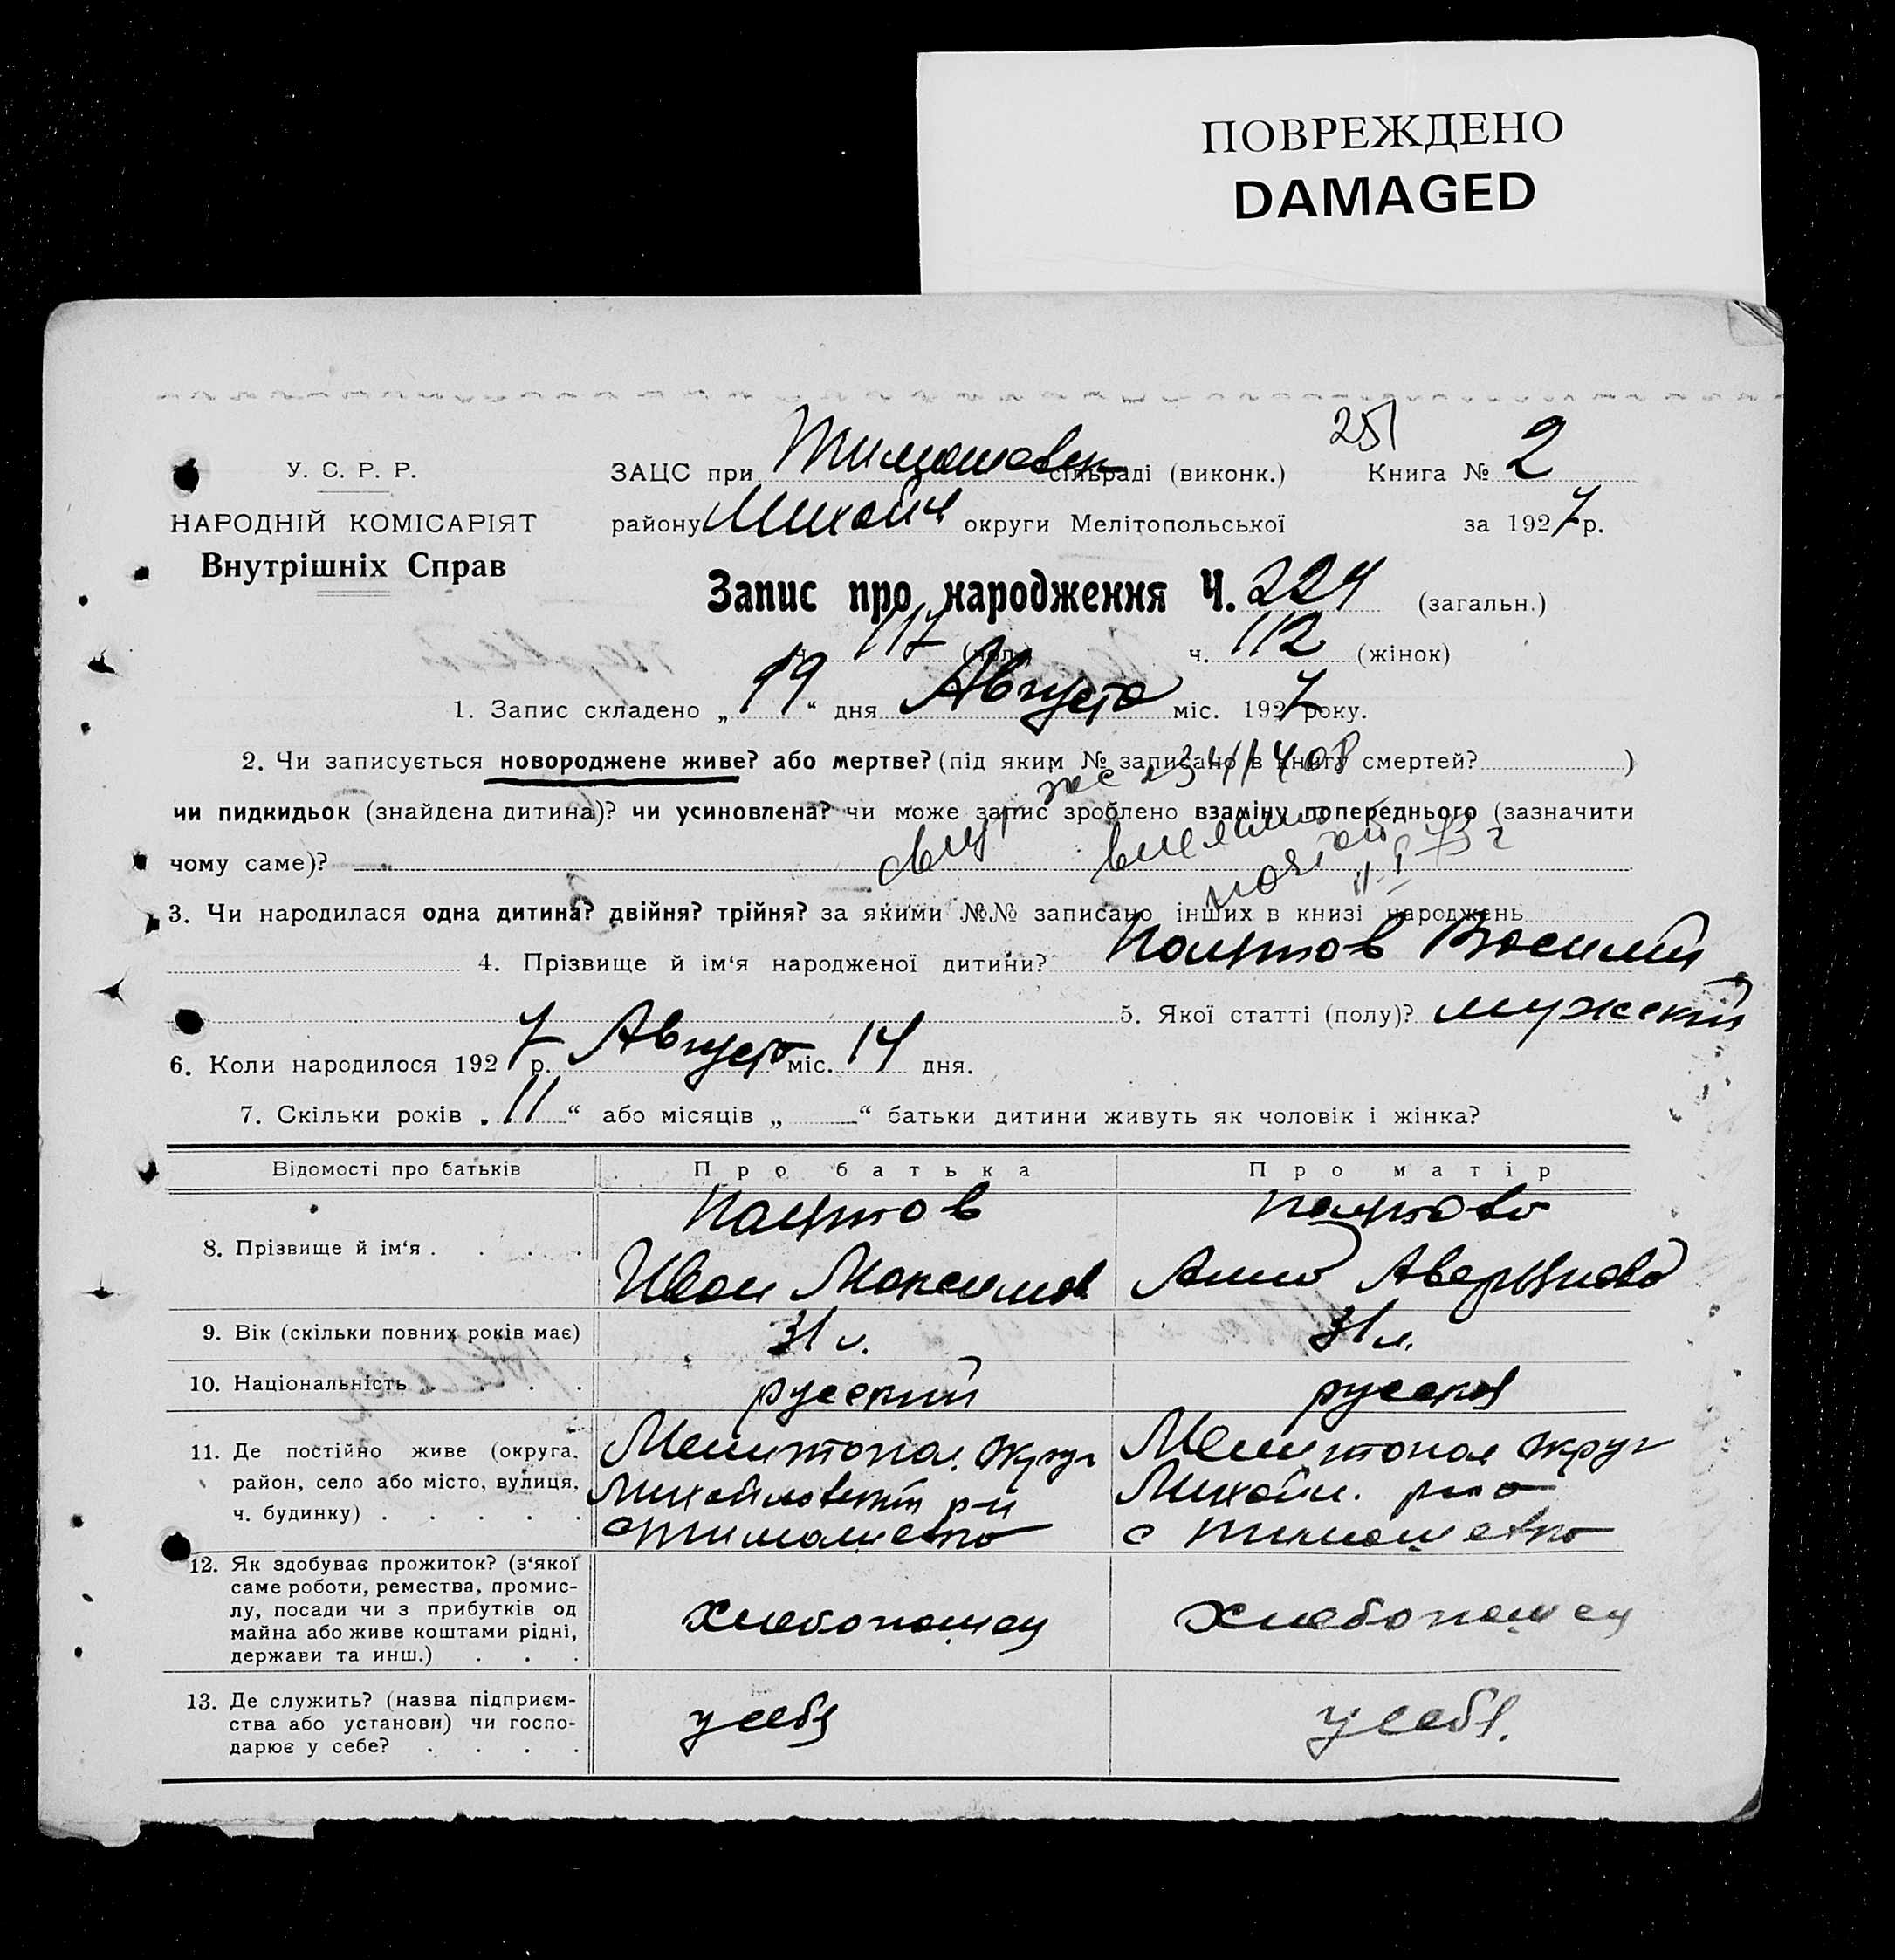 ПОВРЕЖДЕНО
DAMAGED
251
У. С. Р. Р.
НАРОДНІЙ КОМІСАРІЯТ
Внутрішніх Справ
ЗАЦС при Тимошовск сільраді (виконк.) Книга № 2
району Михайл округи Мелітопольської за 1927 р.
Запис про народження Ч. 224 (загальн.)
117 ч. 112 (жінок)
1. Запис складено „19“ дня Августа міс. 1927 року.
2. Чи записується новороджене живе? або мертве? (під яким № записано в книгу смертей? )
чи пидкидьок (знайдена дитина)? чи усиновлена? чи може запис зроблено взаміну попереднього (зазначити
чому саме)?
3. Чи народилася одна дитина? двійня? трійня? за якими №№ записано інших в книзі народжень
4. Прізвище й ім'я народженої дитини? Василий
5. Якої статті (полу)? мужский
6. Коли народилося 1927 р. Августа міс. 14 дня.
7. Скільки років „11“ або місяців „ — “ батьки дитини живуть як чоловік і жінка?
Відомості про батьків Про батька Про матір
8. Прізвище й ім'я . . . .
Иван Максимов Анна
9. Вік (скільки повних років має) 31 л. 31 л.
10. Національність . . . . русский русская
11. Де постійно живе (округа, Мелитопол. округ Мелитопол округ
район, село або місто, вулиця, Михайловский р-н Михайл.
ч. будинку) . . . . . с Тимошевка с Тимошевка
12. Як здобуває прожиток? (з'якої
саме роботи, ремества, промис-
лу, посади чи з прибутків од хлебопашец хлебопашец
майна або живе коштами рідні,
держави та инш.) . . .
13. Де служить? (назва підприєм-
ства або установи) чи госпо- у себя у себя.
дарює у себе? . . . .